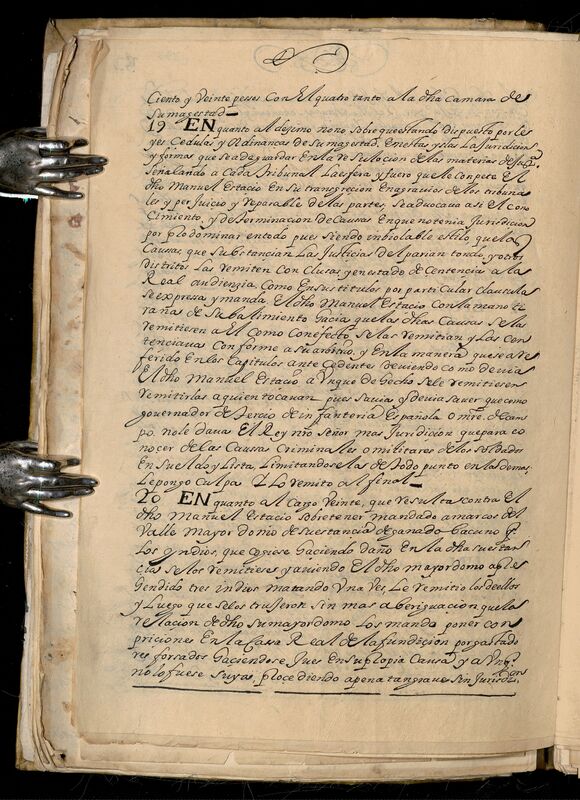 Ciento y Veinte pesses Con El quatro tanto a la dha Camara de
Su magestad
19 EN quanto al desimo nono sobre que estando dispuesto por le
yes Cedulas y Ordinancas de Su magestad. En estas yslas La Juridicion
y forma que se a de guardar En la Resulocion de las materias de
Señalando a Cada tribunal La esfera y fuero que le Conpete El
dho Manuel Estacio En Su transgrecion En agravios de los tribuna
les y per Juicio y Reparable de las partes, se advocava a si El cono
Cimiento, y determinacion de Causas En que no tenia Jurisdicion
por plodominar en todo pues siendo inbiolable estilo que las
Causas, que Substancian Las Justicias del parian tondo, y otros
distritos Las Remiten Con Clusas y en estado de Centencias a la
Real audiengia, Como En sus titulos por particular clausula
Se expresa y manda El dho Manuel Estacio Con la mano ti
rana de Su balimiento gacia que las dhas Causas Se las
Remitiesen a El Como Con efecto, Se las Remitian y las Con
tenciavas Con forme a Su arbitrio, y En la manera que se a re
ferido En los Capitulos ante Cedentes deviendo como devia
El dho Manuel Estacio aUnque de gecho Se le Remitiesen
Remitirlas a quien tocavan pues Savia y devia saver que como
governador de tercio de infanteria Española o mre. de cam
po. no le dava El Rey nro Señor mas Juridicion que para co
nocer de las Causas Criminales o militares de los Soldados
En Sueldo, y Lista, Limitandosela de todo punto en las demas
Le pongo Culpa y Lo Remito al final
20 EN quanto al Cargo Veinte, que Resulta contra El
dho Manuel Estacio Sobre tener mandado a marcos del
Valle mayor domo de su estancia de ganado bacuno q.
Los yndios, que Cogiese gaciendo daño En la dha su estan
cia Se los Remitiese y aviendo El dho mayordomo apre
gendido tres indios matando Una Res, Le Remitio los de ellos
y Luego que se los truxeron Sin mas aberiguacion que la
Relacion de dho Su mayordomo Los mando poner con
priciones En la Cassa Real de la fundicion por gastado
res forsados gaciendose Jues En Su plopia Causa y aUnq.
no lo fuese Suyas, plocediendo a pena tan grave sin Jurisdi